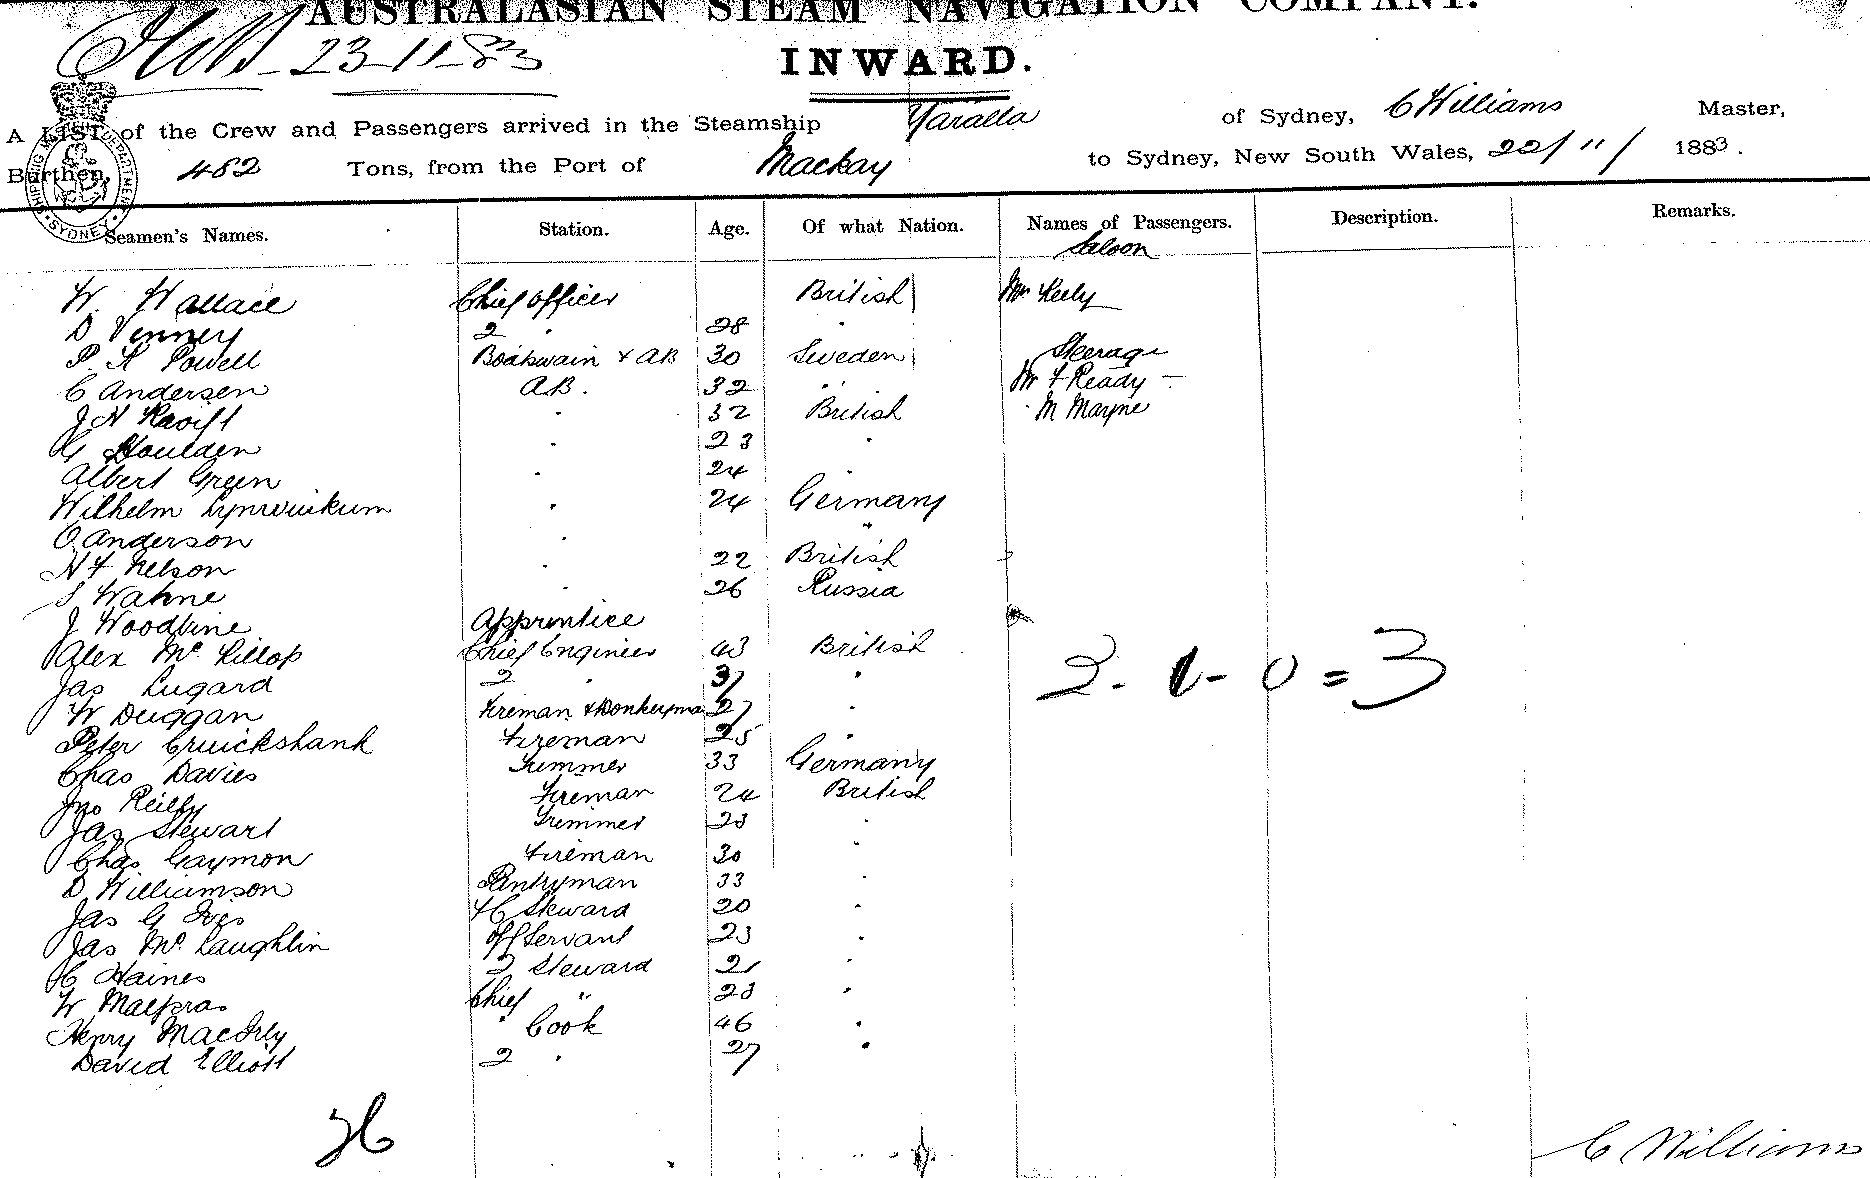 AUSTRALASIAN STEAM NAVIGATION COMPANY.
23-11-83
INWARD.
A LIST of the Crew and Passengers arrived in the Steamship Yaralla of Sydney, C Williams Master,
Burthen, 482 Tons, from the Port of Mackay to Sydney, New South Wales, 22/11/1883.
SHIPPING MASTER'S DEPARTMENT SYDNEY
Seamen's Names. Station. Age. Of what Nation. Names of Passengers. Description. Remarks.
Saloon
W. Wallace Chief Officer British Mr Keely
D Venney 2 " 28 "
P. A Powell Boatswain & AB 30 Sweden Steerage
C Andersen AB. 32 " Mr F Ready -
J H " 32 British M Mayne
G Houlden " 23 "
Albert Green " 24 "
Wilhelm " 24 Germany
O Anderson " "
N F Nelson " 22 British
S Wahne " 26 Russia
J Woodbine Apprentice
Alex Mc Killop Chief Engineer 43 British
Jas Lugard 2 " 37 "
W Duggan Fireman & Donkeyman 27 "
Peter Cruickshank Fireman 25 "
Chas Davies Trimmer 33 Germany
Jno Reilly Fireman 24 British
Jas Stewart Trimmer 23 "
Chas Gaymon Fireman 30 "
D Williamson Pantryman 33 "
Jas G Ives FC Steward 20 "
Jas Mc Laughlin Off Servant 23 "
C Haines 2 Steward 21 "
W Malpras Chief " 23 "
Henry " Cook 46 "
David Elliott 2 " 27 "
2 - 1 - 0 = 3
C Williams